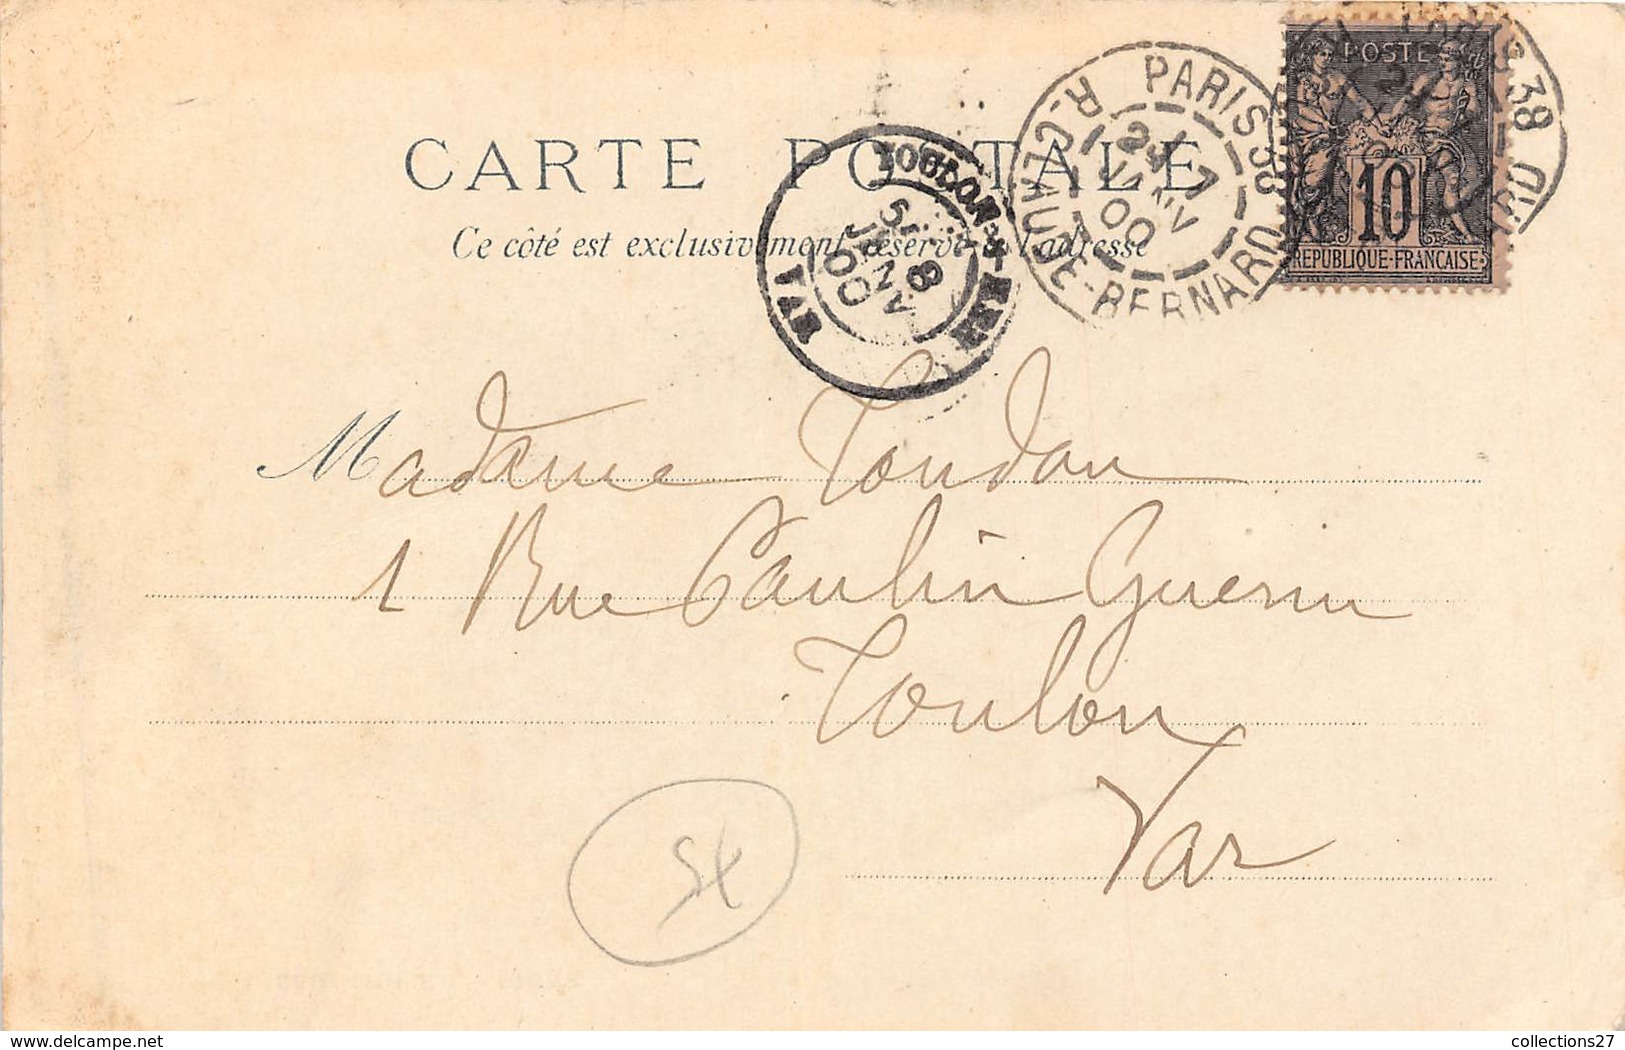 POSTE
10
REPUBLIQUE·FRANCAISE
PARIS 38
R. CLAUDE-BERNARD
JANV
00
CARTE POSTALE
TOULON-S-MER
VAR
8
JANV
00
Ce côté est exclusivement réservé à l'adresse
Madame Toudon
1 Rue Paulin Guerin
Toulon
Var
54
www.delcampe.net
collections27